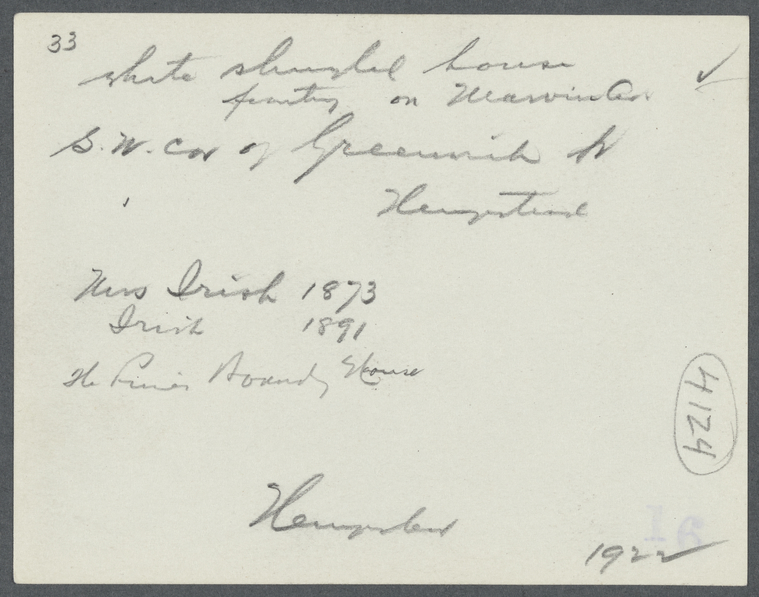 33
white shingled house
fronting on Marvin Av
S.W. cor of Greenwich St
Hempstead
Mrs Irish 1873
Irish 1891
The Pines Boarding House
4124
Hempstead
16
1922